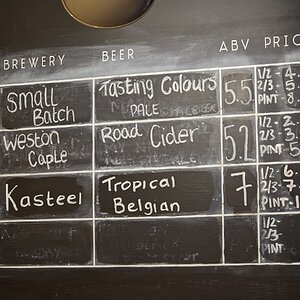 BREWERY BEER ABV PRIC
Small Batch Tasting Colours PALE 5.5 1/2 - 4. 2/3 - 5. PINT - 8
Weston Cople Road Cider 5.2 1/2 - 2. 2/3 - 3 PINT 5
Kasteel Tropical Belgian 7 1/2 - 6. 2/3 - 7 PINT - 1
1/2 - 2/3 - PINT